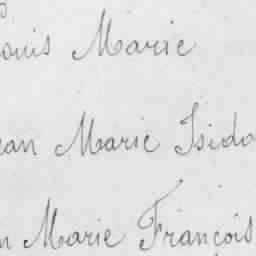 Louis Marie
ean Marie Isido
n Marie François